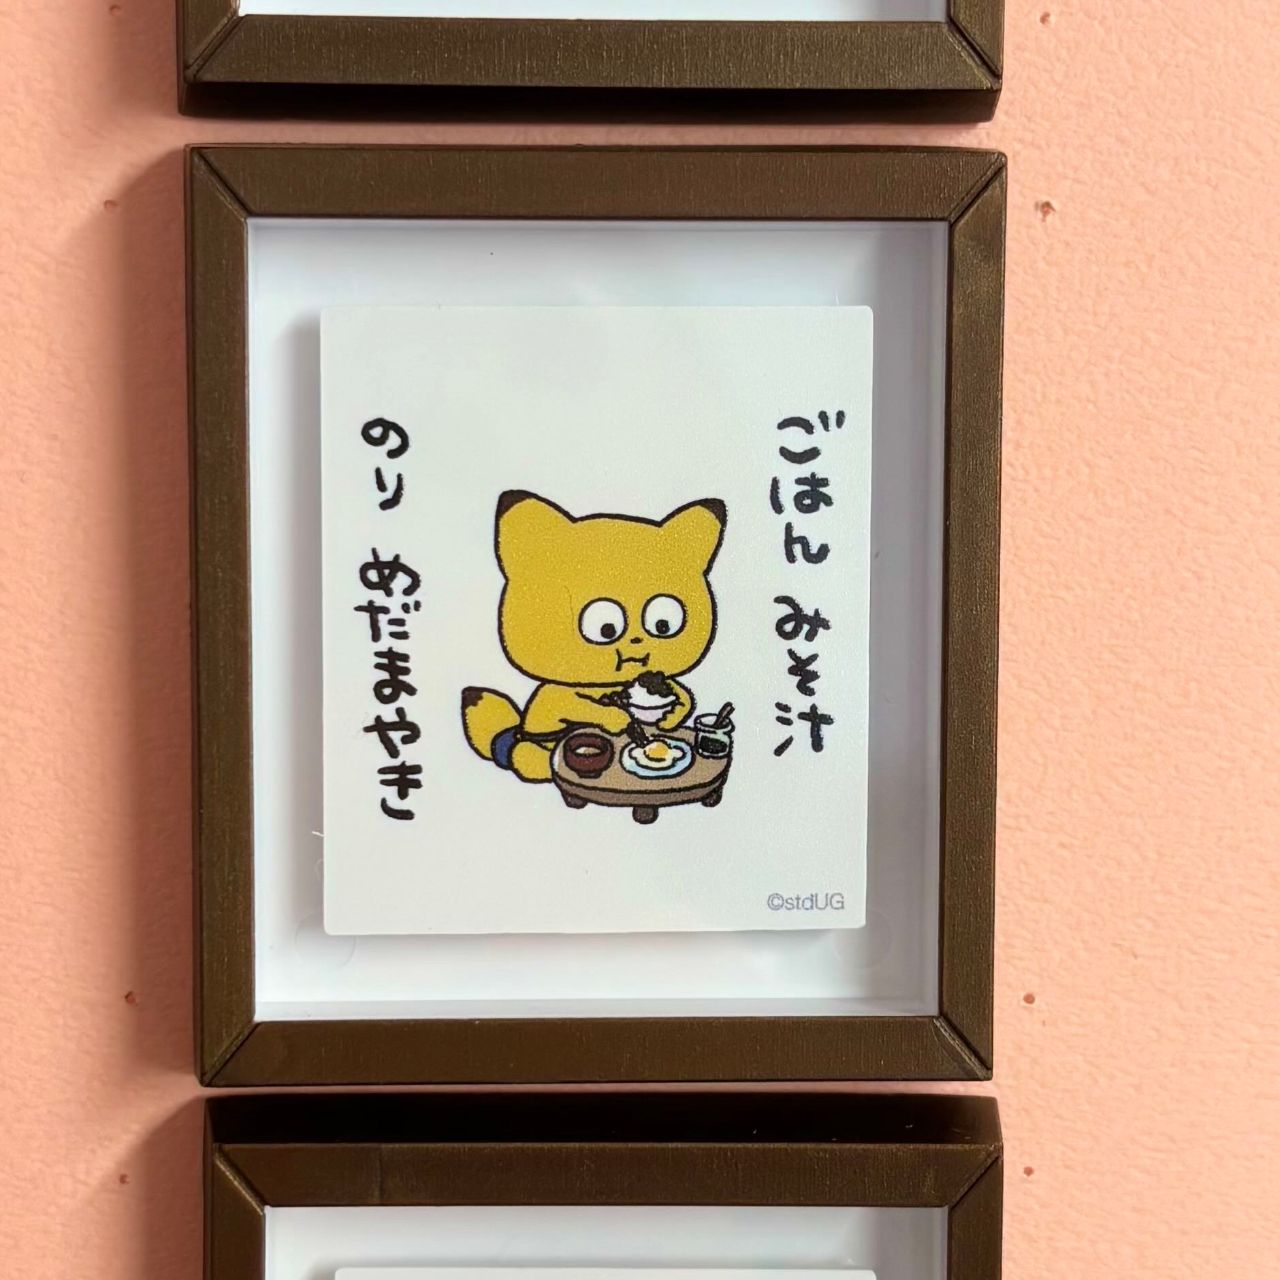 ごはん みそ汁
のり めだまやき
©stdUG